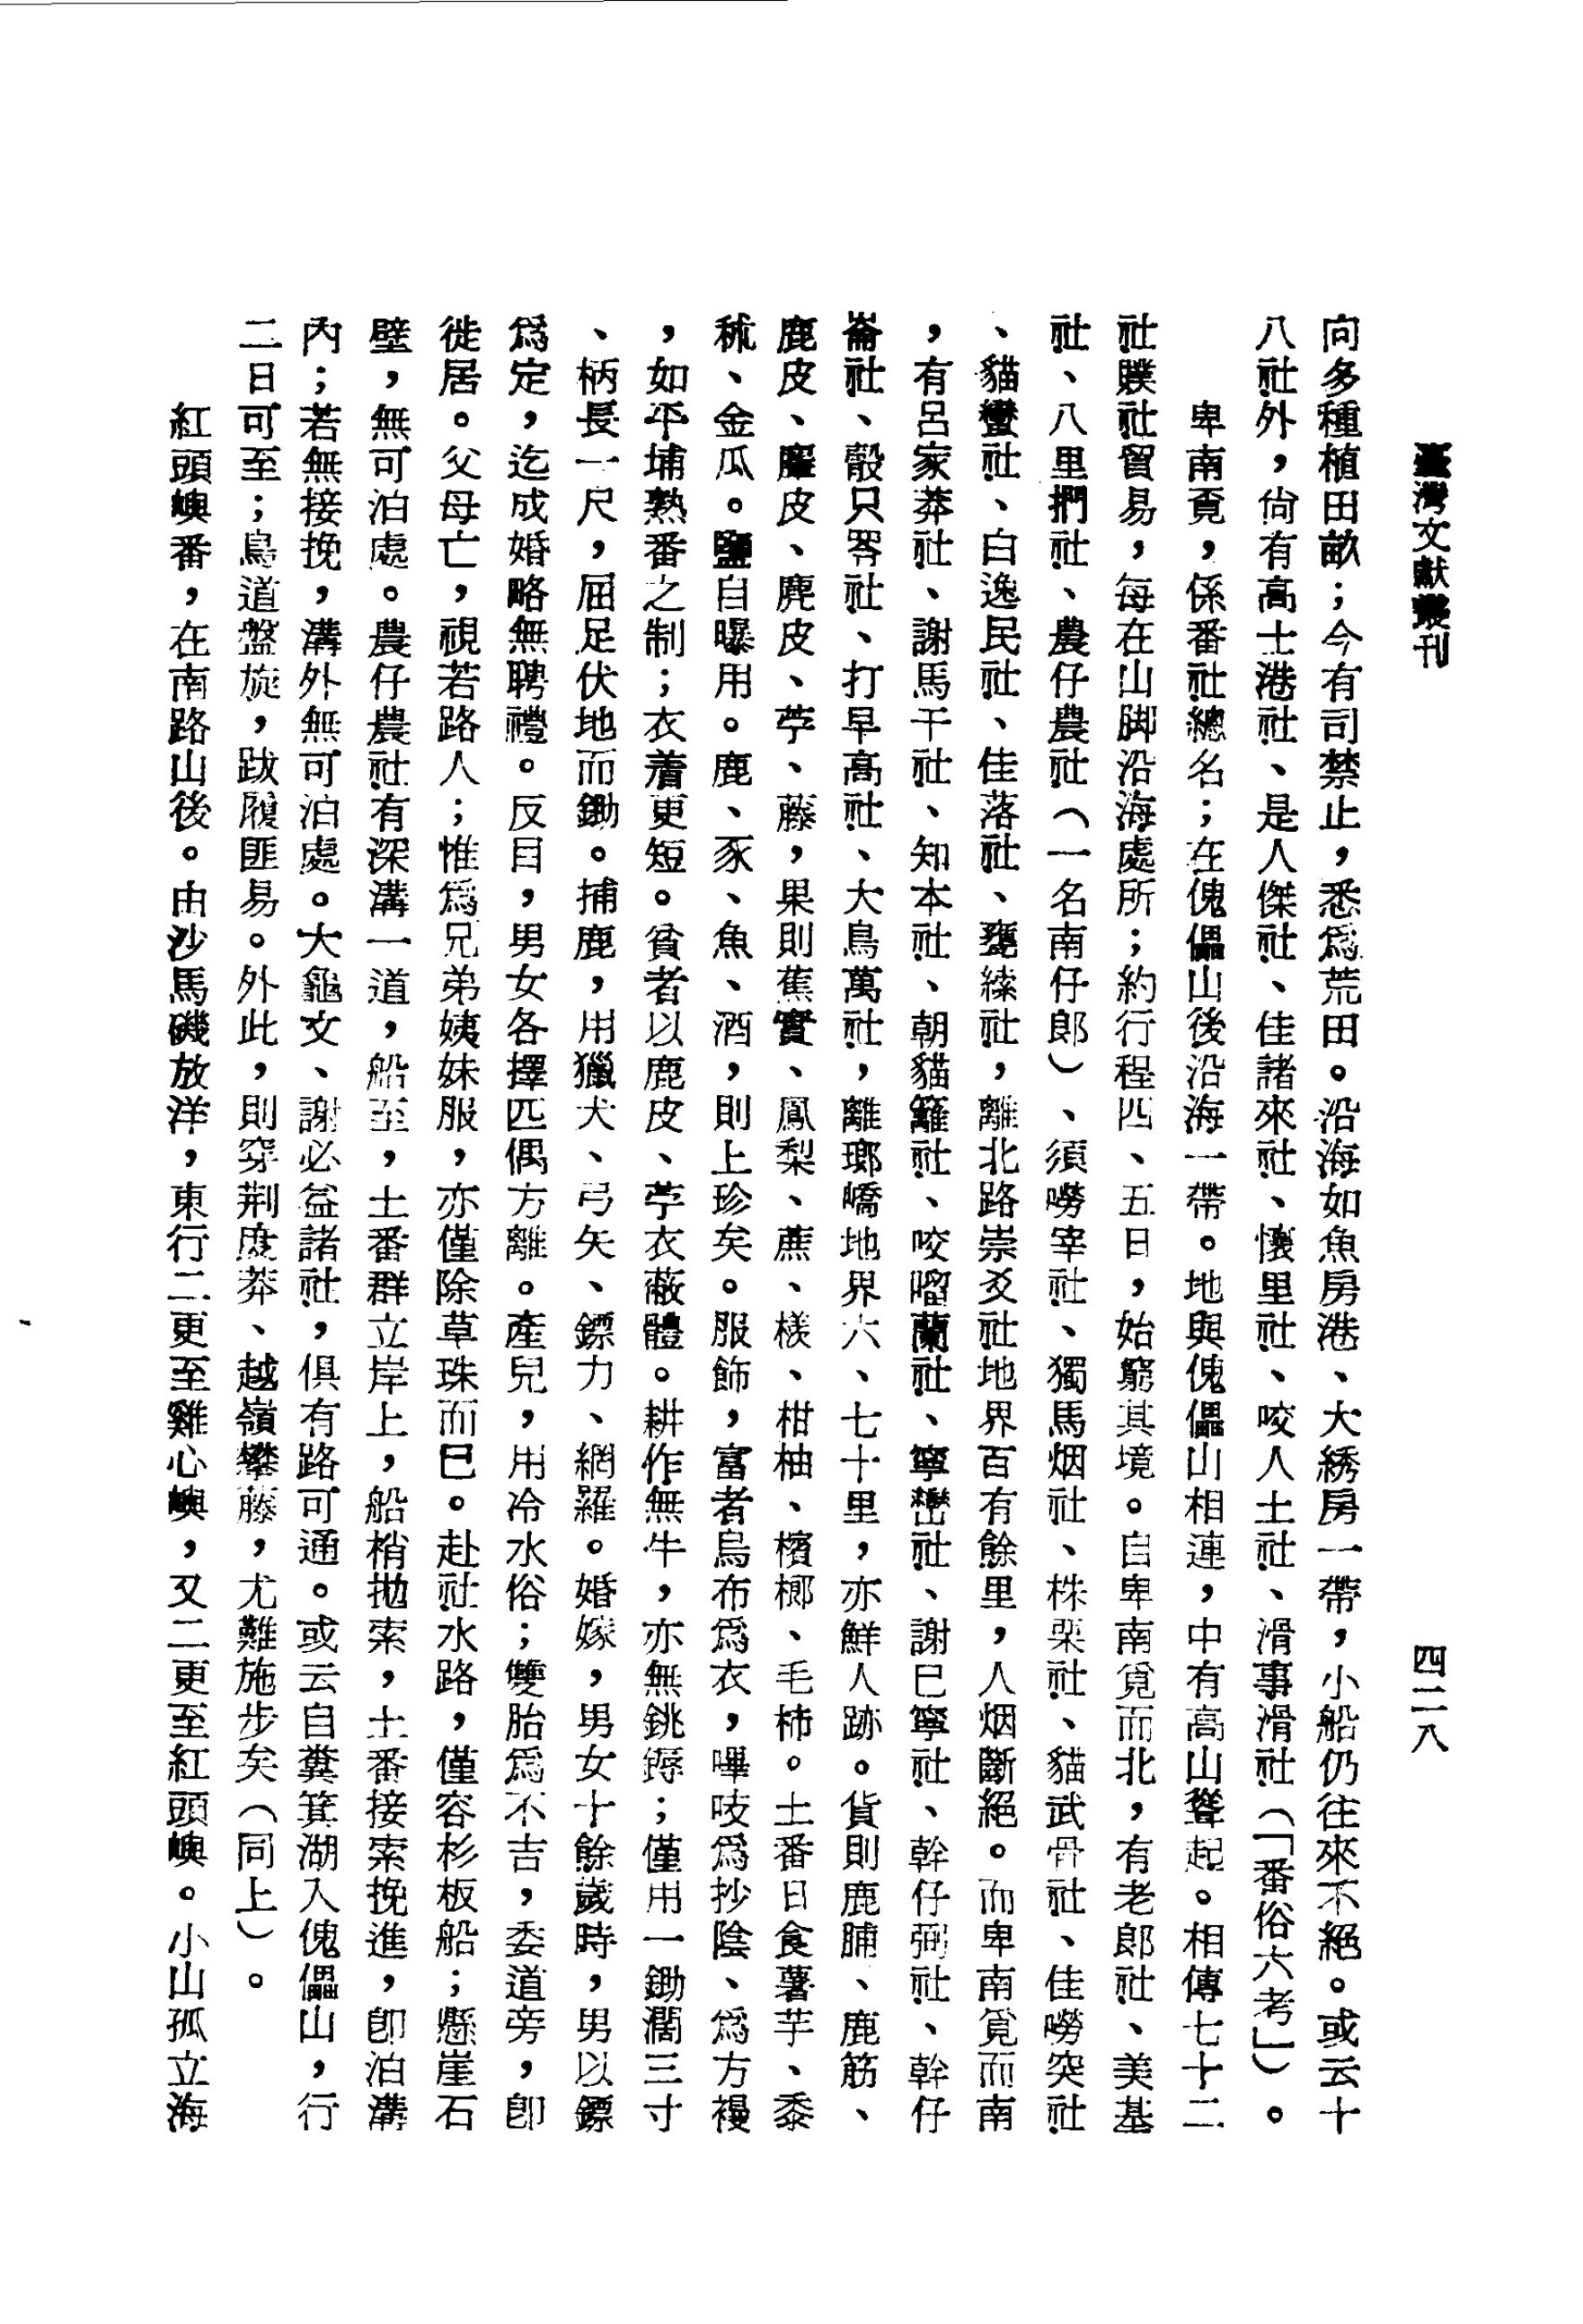 臺灣文獻叢刊
四二八
向多種植田畝；今有司禁止，悉爲荒田。沿海如魚房港、大綉房一帶，小船仍往來不絕。或云十
八社外，尙有高士港社、是人傑社、佳諸來社、懷里社、咬人土社、滑事滑社（「番俗六考」）。
卑南覔，係番社總名；在傀儡山後沿海一帶。地與傀儡山相連，中有高山聳起。相傳七十二
社贌社貿易，每在山脚沿海處所；約行程四、五日，始窮其境。自卑南覓而北，有老郎社、美基
社、八里捫社、農仔農社（一名南仔郎）、須嘮宰社、獨馬烟社、株栗社、貓武骨社、佳嘮突社
、貓蠻社、白逸民社、佳落社、甕縤社，離北路崇爻社地界百有餘里，人烟斷絕。而卑南覓而南
，有呂家莽社、謝馬干社、知本社、朝貓籬社、咬嚠蘭社、寧巒社、謝巳寧社、幹仔弼社、幹仔
崙社、骰只零社、打早高社、大鳥萬社，離瑯嶠地界六、七十里，亦鮮人跡。貨則鹿脯、鹿筋、
鹿皮、麞皮、麂皮、苧、藤，果則蕉實、鳳梨、蔗、檨、柑柚、檳榔、毛柿。土番日食薯芋、黍
秫、金瓜。鹽自曝用。鹿、豕、魚、酒，則上珍矣。服飾，富者烏布爲衣，嗶吱爲抄陰、爲方襏
，如平埔熟番之制；衣着更短。貧者以鹿皮、苧衣蔽體。耕作無牛，亦無銚鎒；僅用一鋤濶三寸
、柄長一尺，屈足伏地而鋤。捕鹿，用獵犬、弓矢、鏢刀、網羅。婚嫁，男女十餘歲時，男以鏢
爲定，迄成婚略無聘禮。反目，男女各擇匹偶方離。產兒，用冷水俗；雙胎爲不吉，委道旁，卽
徙居。父母亡，視若路人；惟爲兄弟姨妹服，亦僅除草珠而巳。赴社水路，僅容杉板船；懸崖石
壁，無可泊處。農仔農社有深溝一道，船至，土番群立岸上，船梢拋索，土番接索挽進，卽泊溝
內；若無接挽，溝外無可泊處。大龜文、謝必益諸社，俱有路可通。或云自糞箕湖入傀儡山，行
二日可至；鳥道盤旋，跋履匪易。外此，則穿荆度莽、越嶺攀藤，尤難施步矣（同上）。
紅頭嶼番，在南路山後。由沙馬磯放洋，東行二更至雞心嶼，又二更至紅頭嶼。小山孤立海